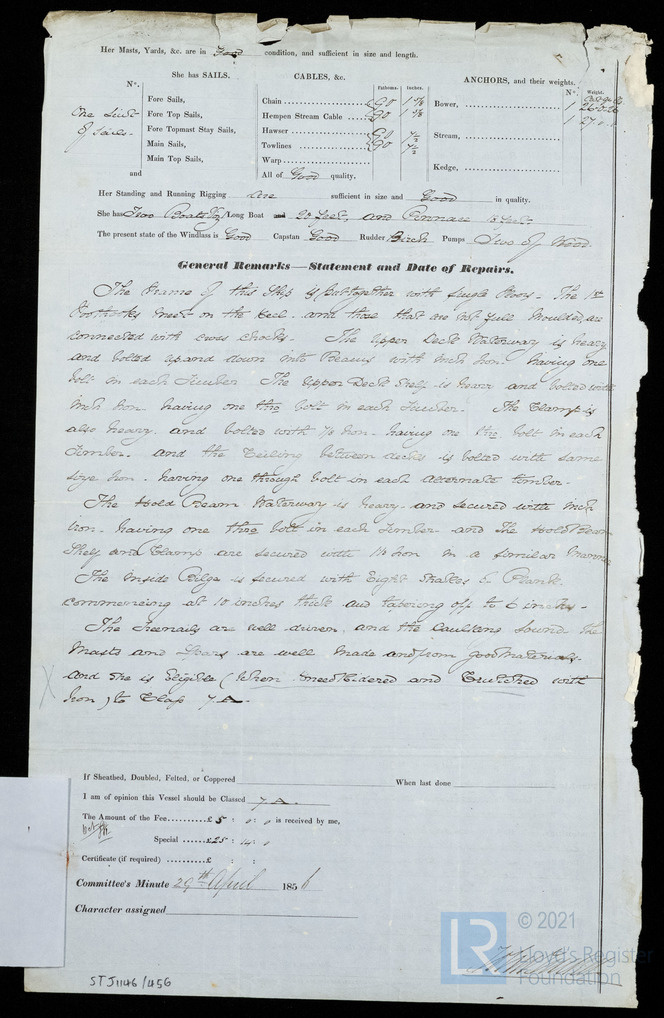 Her Masts, Yards, &c. are in Good condition, and sufficient in size and length.
She has SAILS. CABLES, &c. ANCHORS, and their weights.
N°. Fathoms. Inches. N°. Weight.
One Suit of Sails.
Fore Sails,
Fore Top Sails,
Fore Topmast Stay Sails,
Main Sails,
Main Top Sails,
and
Chain 90 1 5/8
Hempen Stream Cable 90
Hawser 90 7½
Towlines 90 7½
Warp
All of Good quality.
Bower, 1
1 27
Stream,
Kedge,
Her Standing and Running Rigging are sufficient in size and Good in quality.
She has Two Boats Long Boat and Pinnace
The present state of the Windlass is Good Capstan Good Rudder Birch Pumps Two of Wood
General Remarks—Statement and Date of Repairs.
The Frame of this Ship is put together with single floors. The 1st
Foothooks meet on the keel. and those that are not full moulded, are
connected with cross chocks. The Upper Deck Waterway is heavy
and bolted up and down into Beams with inch Iron. having one
bolt in each Timber The Upper Deck Shelf is heavy and bolted with
inch Iron. having one thro bolt in each Timber. The Clamp is
also heavy. and bolted with 7/8 Iron. having one thro bolt in each
Timber. and the Ceiling between decks is bolted with same
size Iron. having one through bolt in each alternate timber.
The Hold Beam Waterway is heavy. and secured with inch
Iron. having one thro bolt in each Timber and The Hold Beam
Shelf and Clamp are secured with 1⅛ Iron in a similar manner
The inside Bilge is secured with Eight Strakes of Plank.
commencing at 10 inches thick and tapering off to 6 inches.
The Treenails are well driven. and the Caulking Sound. The
Masts and Spars are well made and from good materials.
And she is Eligible (when Kneed Ridered and Crutched with
Iron) to Class 7 A.
If Sheathed, Doubled, Felted, or Coppered When last done
I am of opinion this Vessel should be Classed 7 A.
The Amount of the Fee £5 : 0 : 0 is received by me,
Special £25 : 14 : 0
Certificate (if required) £ : :
Committee's Minute 29th April 1856
Character assigned
STJ1146/456
LR © 2021
Lloyd's Register
Foundation